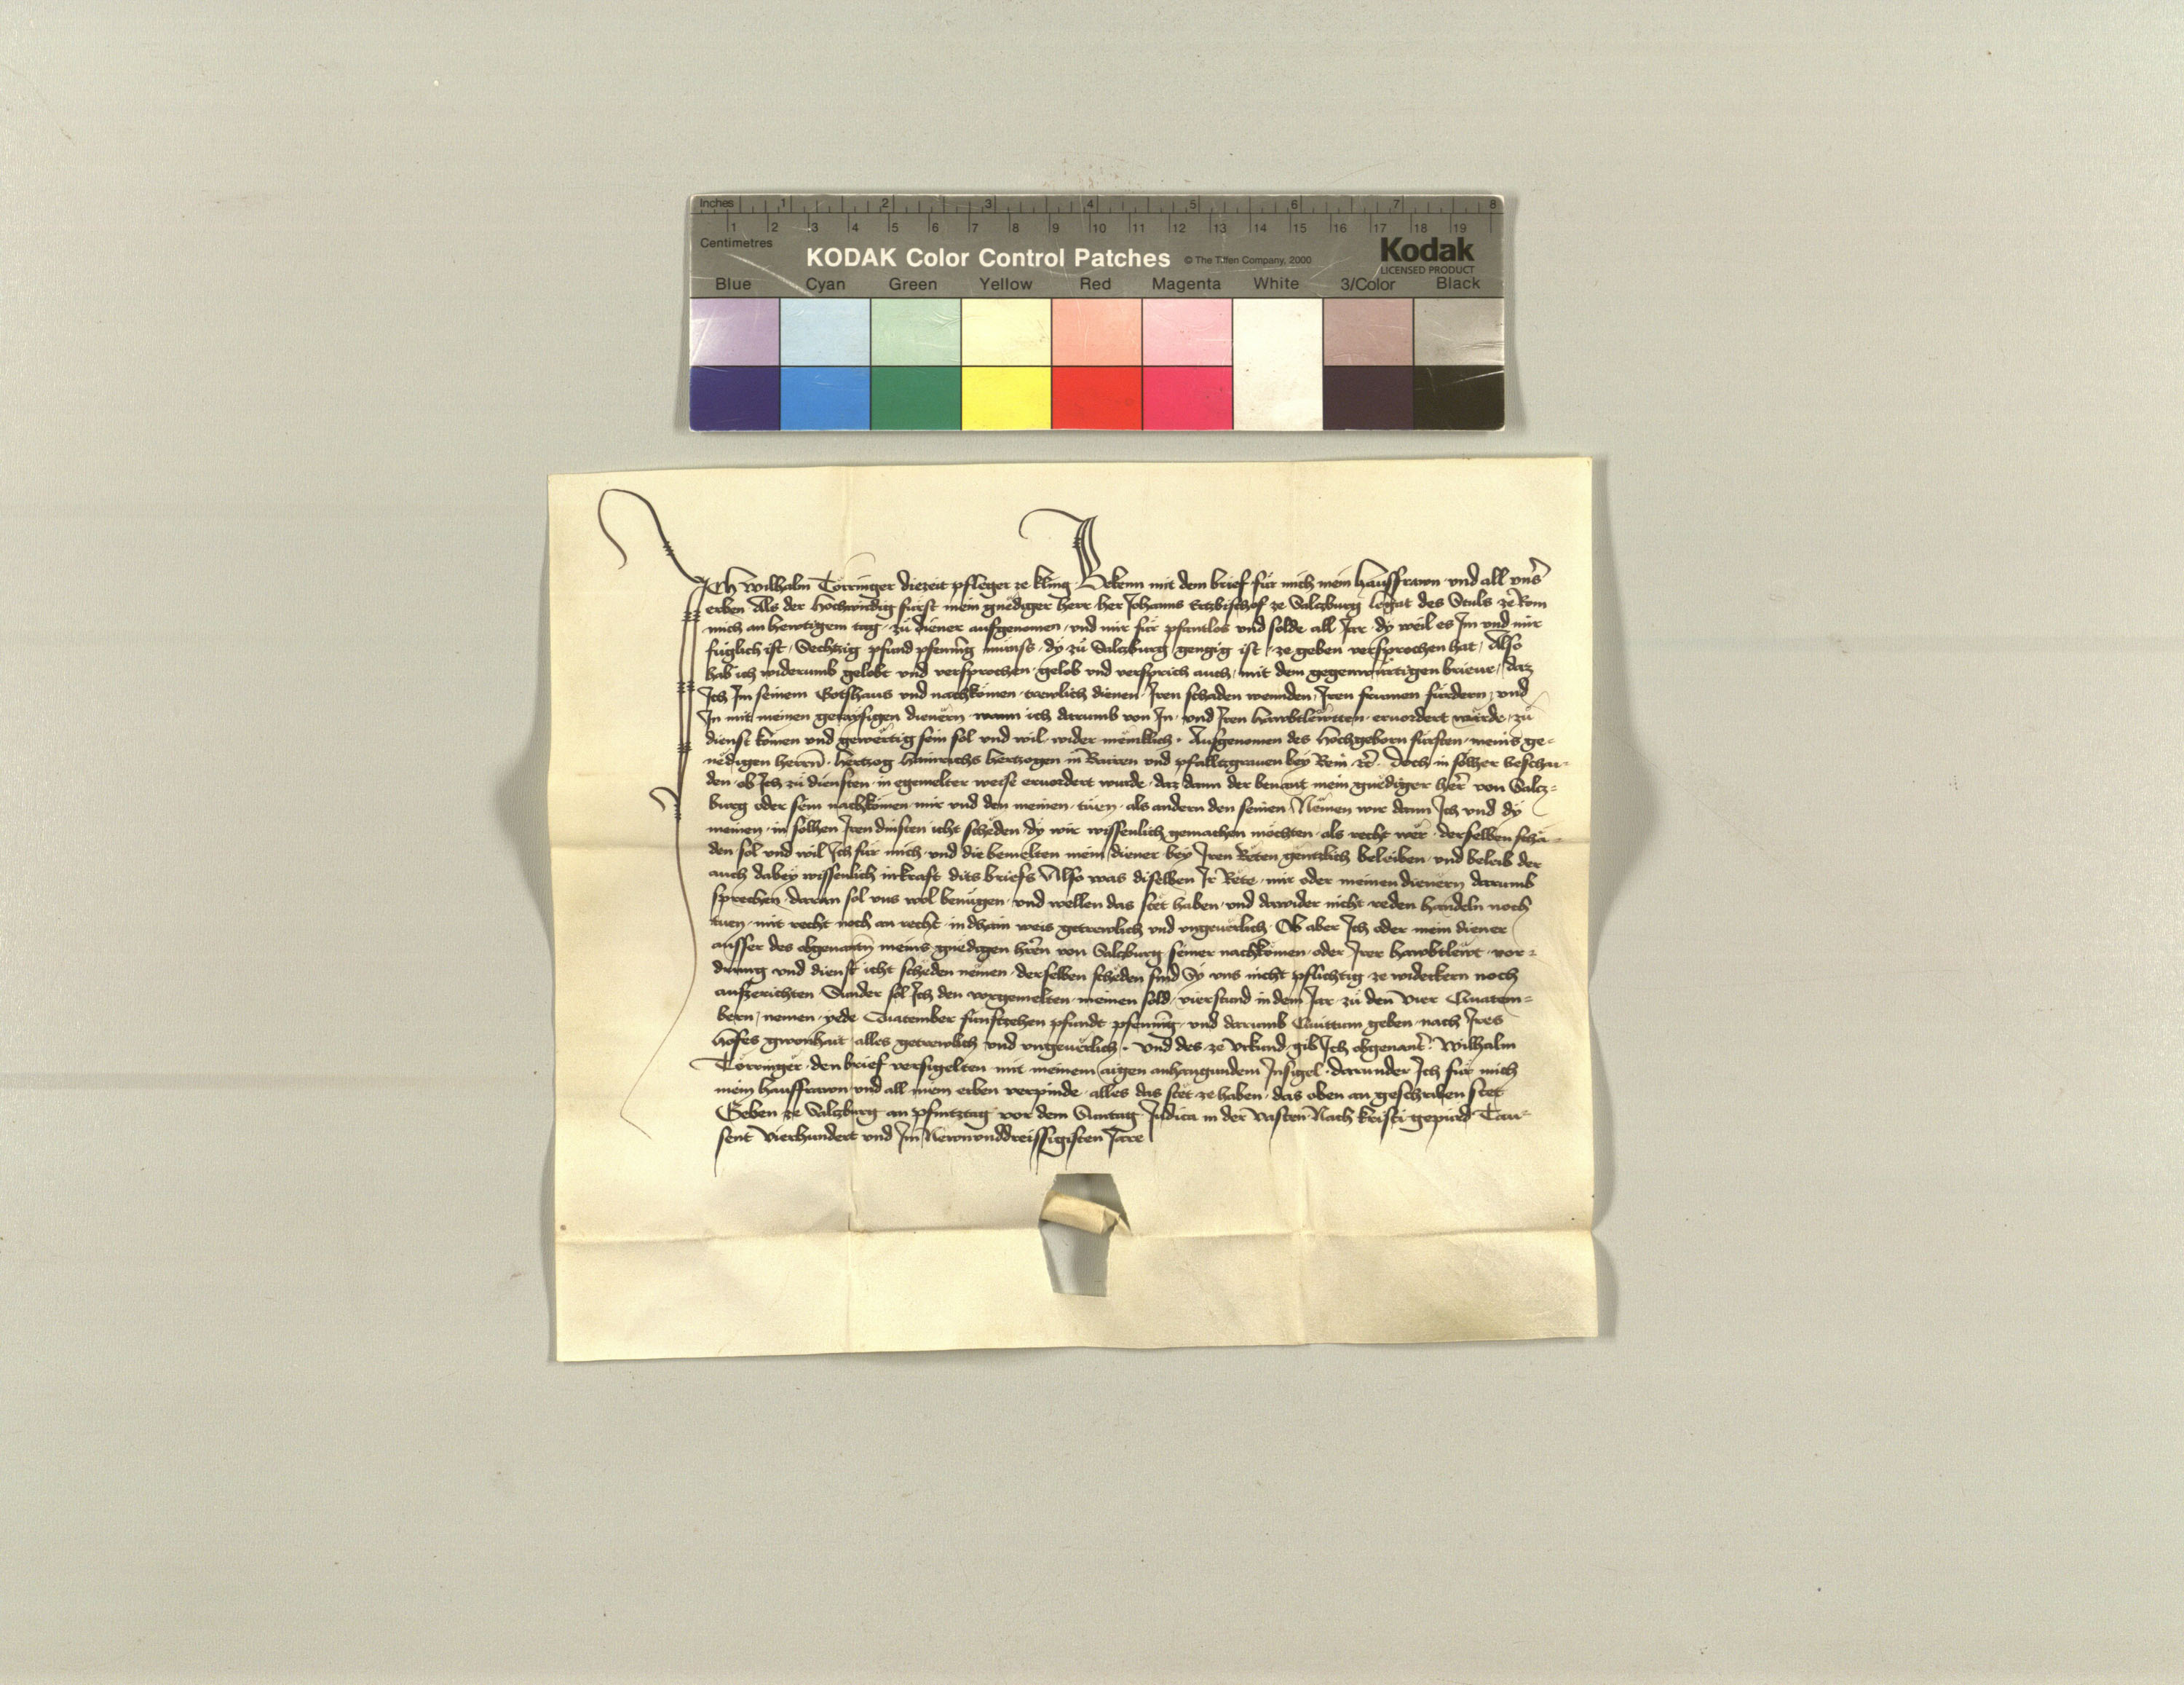 Inches 1 2 3 4 5 6 7 8
1 2 3 4 5 6 7 8 9 10 11 12 13 14 15 16 17 18 19
Centimetres
KODAK Color Control Patches © The Tiffen Company, 2000 Kodak
LICENSED PRODUCT
Blue Cyan Green Yellow Red Magenta White 3/Color Black
Ich Wilhalm Törringer diezeit pfleger ze kling Bekenn mit dem brief für mich mein hausfrawn und all vns̄
erben Als der hochwirdig fürst mein gnëdiger herr her Johanns Ertzbischof ze Salczburg legat des Stuls ze Rom
mich an hewtigem tag zü diener aufgenomen und mir für pfantlos und solde all Jar dy weil es Im und mir
füglich ist Sechtzig pfund pfennīg münss dy zü Salczburg gengig ist ze geben versprochen hat Also
hab ich widerumb gelobt und versprochen gelob und versprich auch mit dem gegenwürtigen brieue daz
Ich Im seinem Gotshaus und nachkomen trewlich dienen Iren schaden wennden Iren frumen fürdern und
In mit meinen geraysigen dienern wann ich darumb von In und Iren hawbtlewtten eruordert würde zü
dienst komen und gewertig sein sol und wil wider meniklich Ausgenomen des hochgeborn fürsten meins ge-
nëdigen herrn̄ hertzog Hainreichs hertzogen in Bairen und pfalltzgrauen bey Rein ꝛc̄ Doch in solher beschai-
den ob Ich zü diensten in egemelter weise eruordert wurde daz dann der benant mein gnëdiger her̄ von Salcz-
burg oder sein nachkomen mir und den meinen tüen als andern den seinen Nëmen wir dann Ich und dy
meinen in solhen Iren dinsten icht schëden dy wir wissenlich gemachen möchten als recht wër derselben schë-
den sol und wil Ich für mich und die bemelten mein diener bey Iren Rëten gëntzlich beleiben und beleib der
auch dabey wissenlich inkraft dits briefs Also was diselben Ir Rëte mir oder meinen dienern darumb
sprechen daran sol uns wol benügen und wellen das stët haben und dawider nicht reden handeln noch
tuen mit recht noch an recht in dhain weis getrewlich und ungeuërlich Ob aber Ich oder mein diener
ausser des obgenantn̄ meins gnëdigen hr̄en von Salczburg seiner nachkomen oder Irer hawbtlewt vor-
drung und dienst icht schëden nëmen derselben schëden sind Sy uns nicht pflichtig ze widerkern noch
aufzerichten Sunder sol Ich den vorgemelten meinen sold vierstund in dem Jar zü den vier Quatem-
bern nemen yede Quatember fünftzehen pfundt pfennīg und darumb Quittum geben nach Ires
hofes gwonhait alles getrewlich und ungeuërlich Und des ze urkund gib Ich obgenant̄ Wilhalm
Törringer den brief versigelten mit meinem aigen anhangundem Insigel darunder Ich für mich
mein hausfrawn und all mein erben verpinde alles das stët ze haben das oben an geschriben stet
Geben ze Salczburg an pfintztag vor dem Suntag Judica in der vasten Nach kristi gepürd Tau-
sent vierhundert und Im Newnunddreissigisten Jare